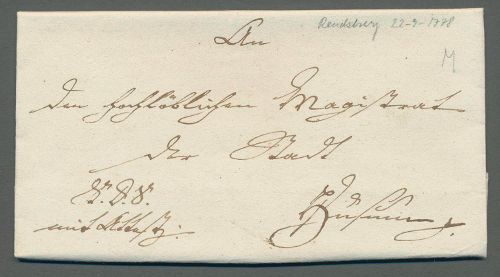 Rendsburg 22-9-1788
M
An
den hochlöblichen Magistrat
der Stadt
Husum
mit Attest.